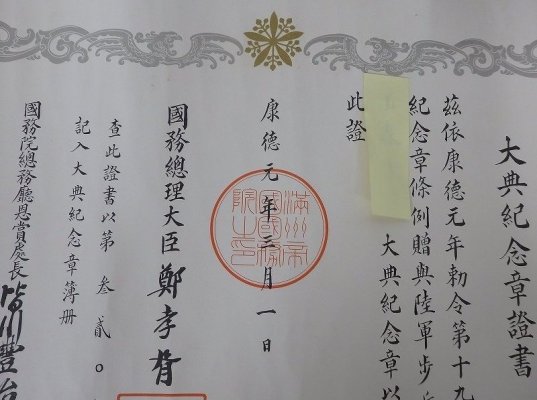 大典紀念章證書
茲依康德元年勅令第十九
紀念章條例贈與陸軍步
大典紀念章以
此證
康德元年三月一日
滿州帝國國務院之印
國務總理大臣 鄭孝胥
查此證書以第 叁貳〇
記入大典紀念章簿册
國務院總務廳恩賞處長 皆川豐治